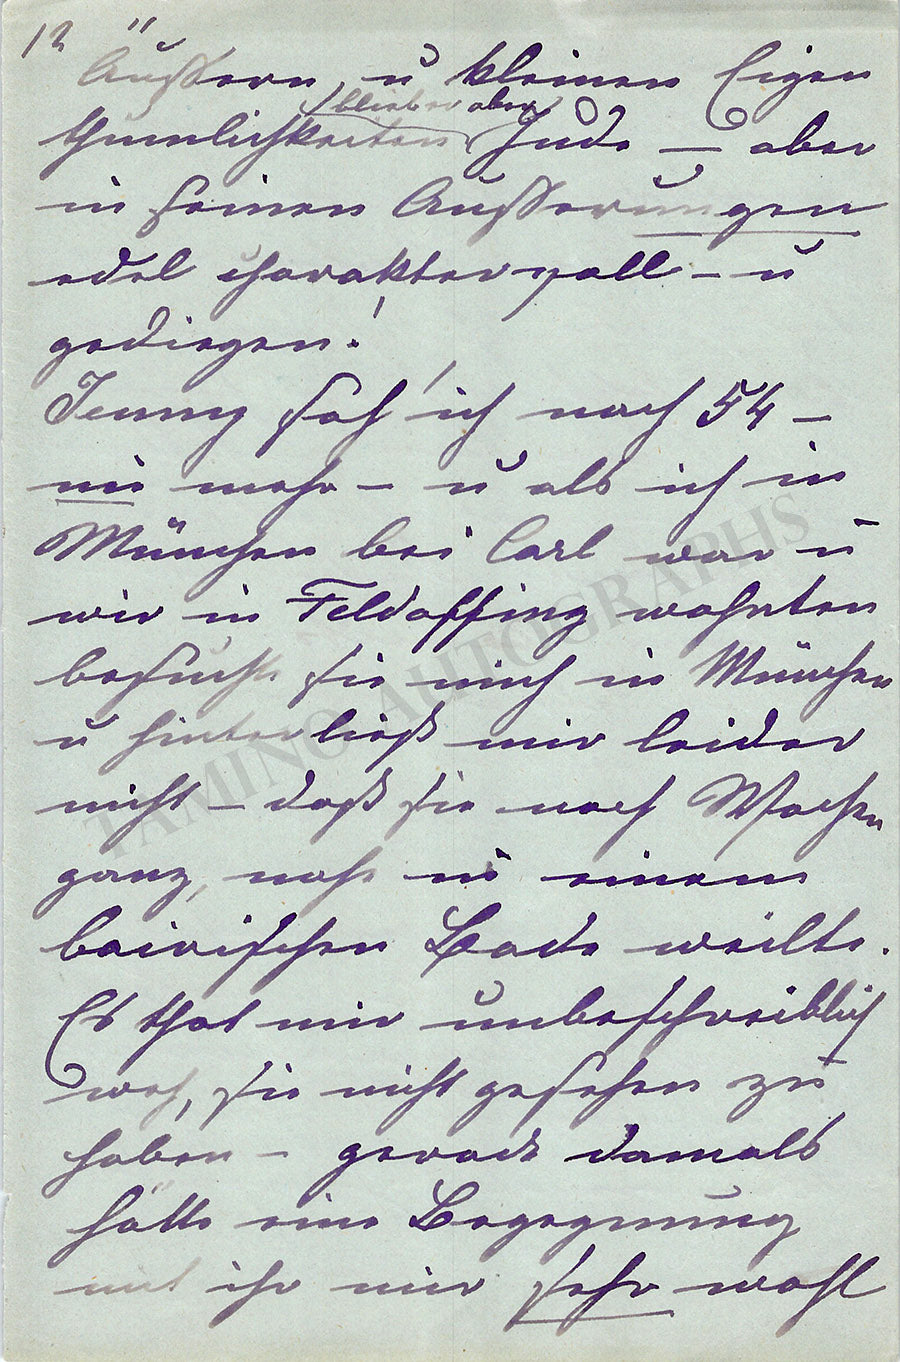 12
Äussern, u kleinen Eigen
blieb er aber
thümlichkeiten Jude — aber
in seinen Äusserungen
edel charaktervoll – u
gediegen!
Jenny sah ich nach 54 –
nie mehr – u als ich in
München bei Carl war u
wir in Feldaffing wohnten
besuchte sie mich in München
u hinterließ mir leider
nicht – daß sie nach Wochen
ganz, nahe in einem
bairischen Bade weilte.
Es that mir unbeschreiblich
weh, sie nicht gesehen zu
haben – gerade damals
hätte eine Begegnung
mit ihr mir sehr wohl
TAMINO AUTOGRAPHS